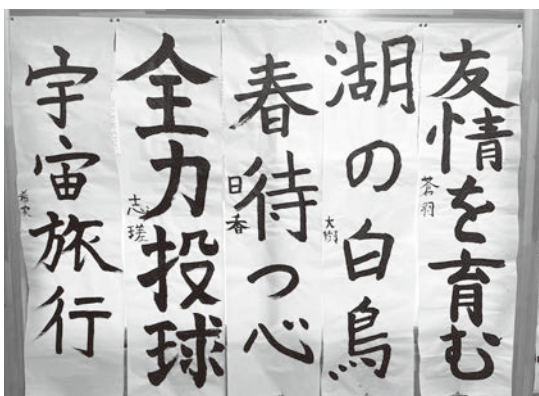 友情を育む
蒼羽
湖の白鳥
大樹
春待つ心
日香
全力投球
志瑳
宇宙旅行